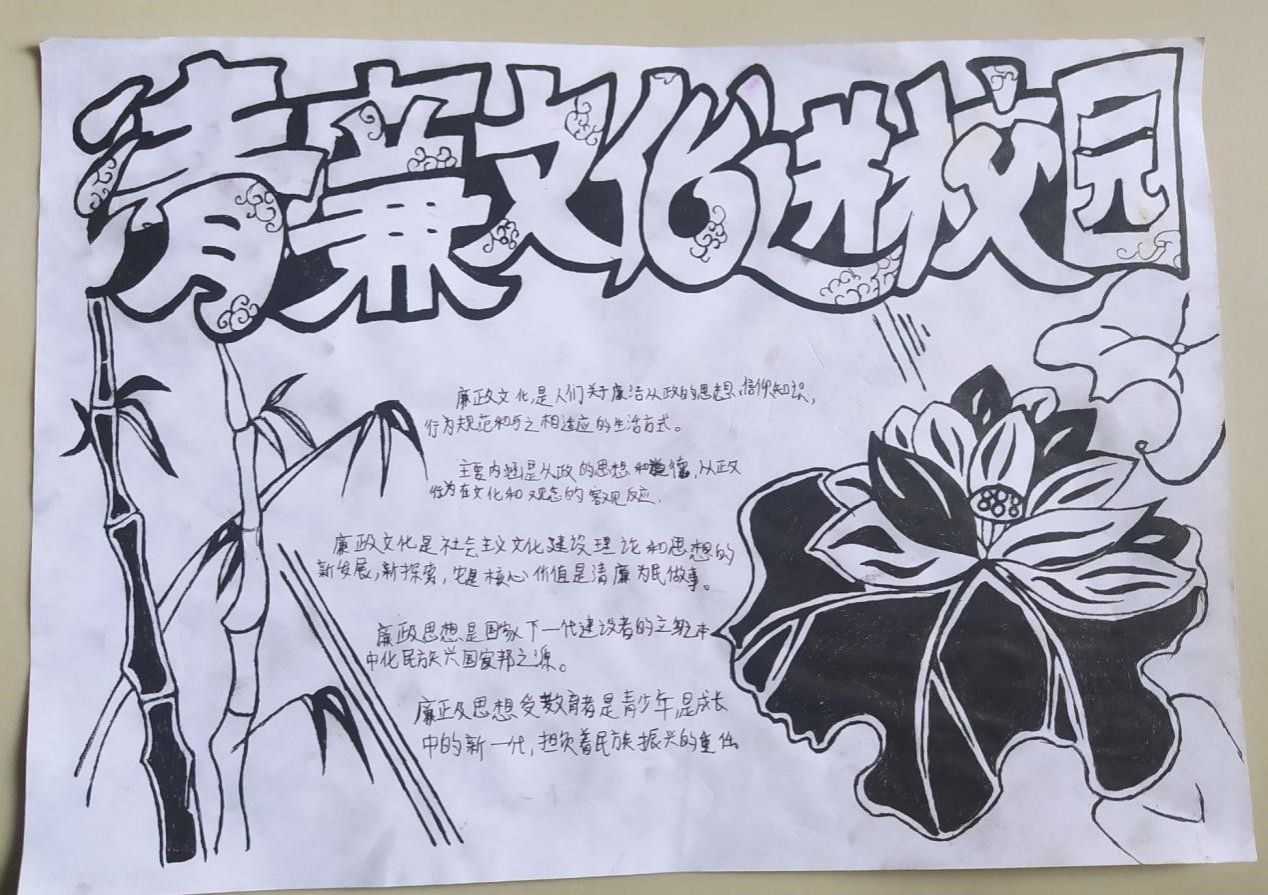 清廉文化进校园
廉政文化是人们关于廉洁从政的思想、信仰、知识,
行为规范和与之相适应的生活方式。
主要内涵是从政的思想和道德,从政
行为在文化和观念的客观反应.
廉政文化是社会主义文化建设理论和思想的
新发展,新探索,它是核心价值是清廉为民做事。
廉政思想是国家下一代建设者的立身本
中化民族兴国家邦之源。
廉正及思想受教育者是青少年,是成长
中的新一代,担负着民族振兴的重任